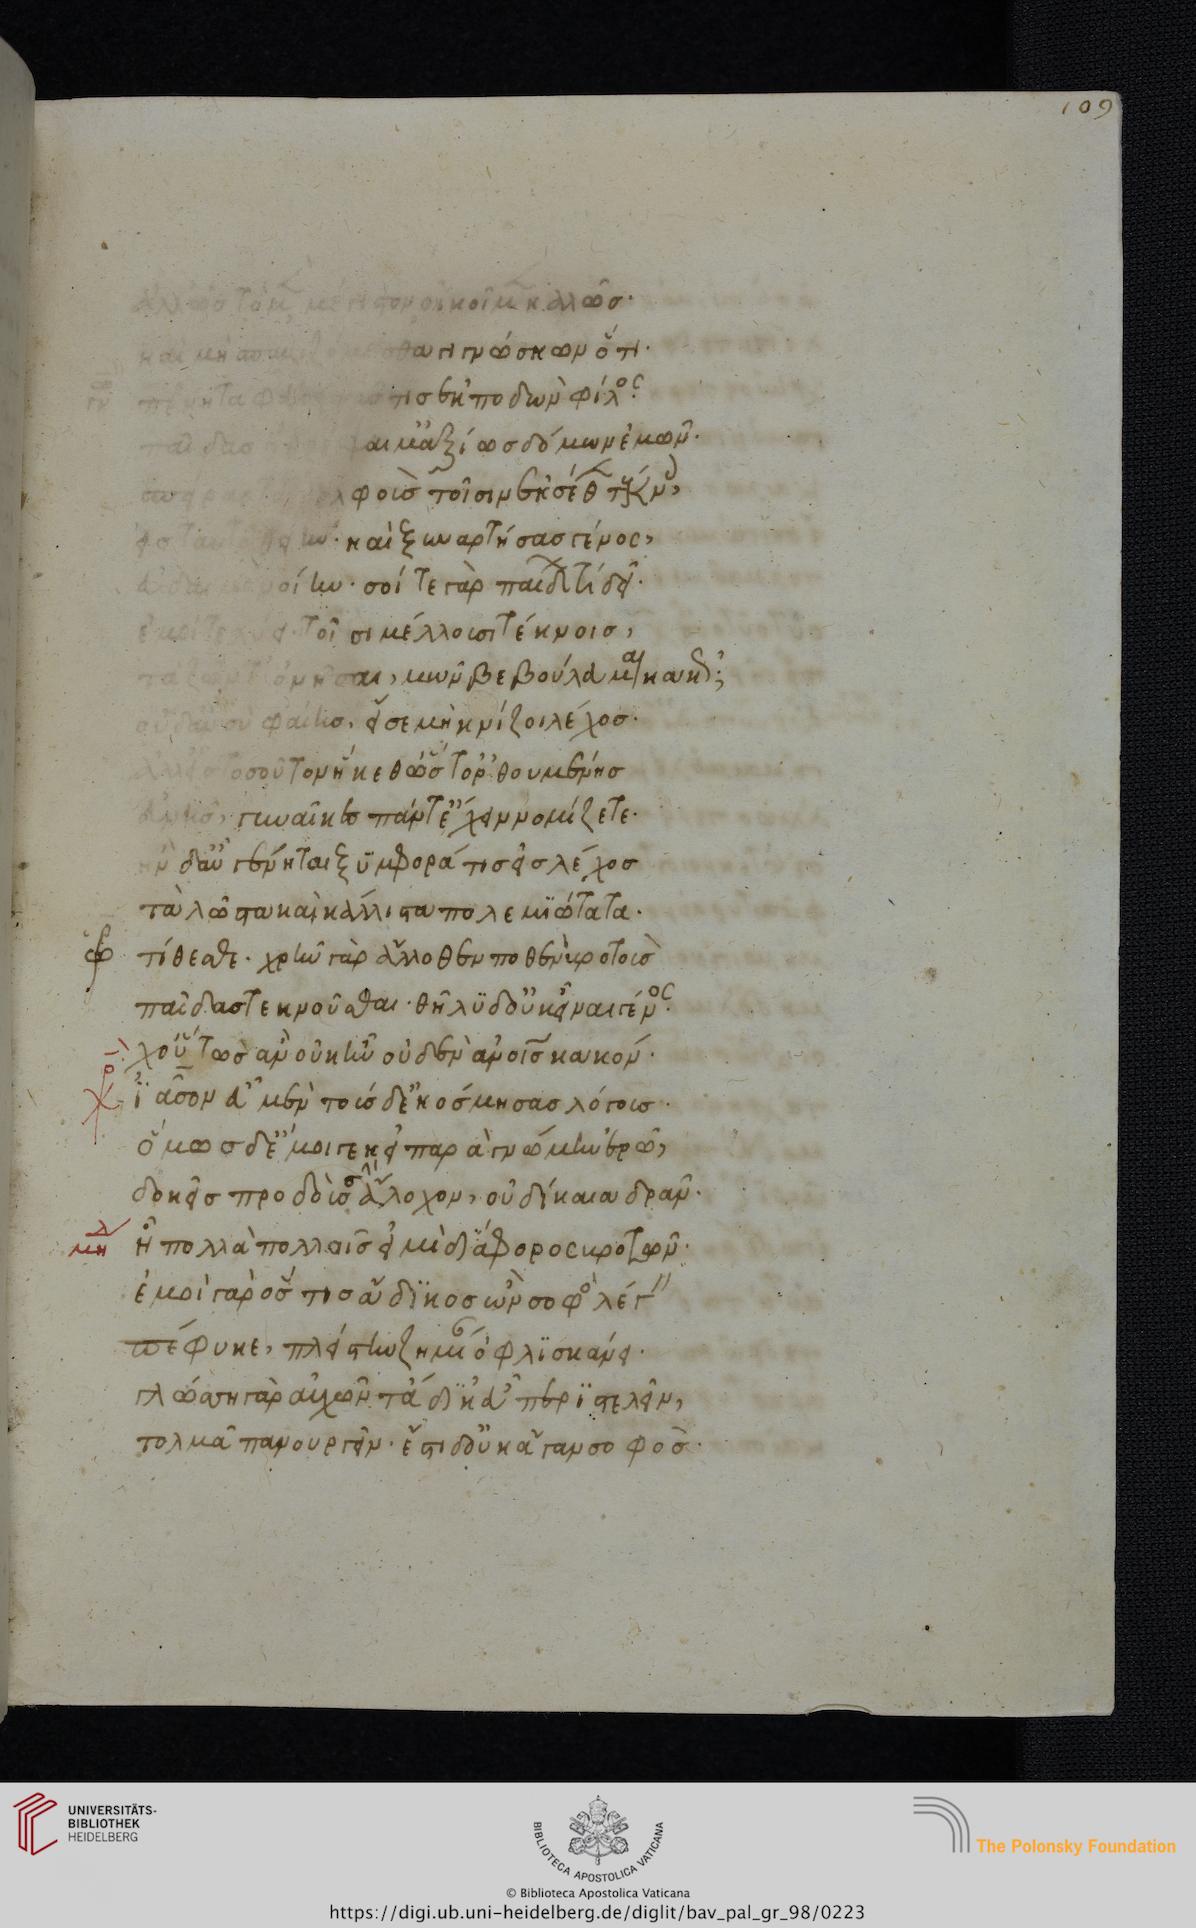 109
οἰκοῖμεν καλῶσ·
γιγνώσκων ὅτι·
τισ ἐκποδὼν φίλος·
ἀξίωσ δόμων ἐμῶν·
τοῖσιν ἐκ σέθεν τέκνων,
καὶ ξυναρτήσασ γένος,
σοί τε γὰρ παίδων τί δεῖ·
τοῖσι μέλλουσι τέκνοισ,
μῶν βεβούλευμαι κακῶς;
οὐδ' ἂν σὺ φαίησ, εἴ σε μὴ κνίζοι λέχοσ·
ἀλλ' ἐσ τοσοῦτον ἥκεθ' ὥστ' ὀρθουμένησ
εὐνῆσ, γυναῖκεσ πάντ' ἔχειν νομίζετε·
ἢν δ' αὖ γένηται ξυμφορά τισ εἰσ λέχοσ
τὰ λῷστα καὶ κάλλιστα πολεμιώτατα·
τίθεσθε· χρῆν γὰρ ἄλλοθέν ποθεν βροτοὺσ
παῖδασ τεκνοῦσθαι· θῆλυ δ' οὐκ εἶναι γένος·
χοὕτωσ ἂν οὐκ ἦν οὐδὲν ἀνοισ κακόν·
χο
ἰᾶσον εὖ μὲν τούσδ' ἐκόσμησασ λόγουσ·
ὅμωσ δ' ἔμοιγε κεἰ παρὰ γνώμην ἐρῶ,
δοκεῖσ προδοὺσ σὴν ἄλοχον, οὐ δίκαια δρᾶν·
μηδ
ἦ πολλὰ πολλοῖσ εἰμὶ διάφορος βροτῶν·
ἐμοὶ γὰρ ὅστισ ἄδικοσ ὢν σοφὸς λέγειν
πέφυκε, πλείστην ζημίαν ὀφλισκάνει·
γλώσσῃ γὰρ αὐχῶν τἄδικ' εὖ περιστελεῖν,
τολμᾷ πανουργεῖν· ἔστι δ' οὐκ ἄγαν σοφόσ·
UNIVERSITÄTS-
BIBLIOTHEK
HEIDELBERG
BIBLIOTECA APOSTOLICA VATICANA
© Biblioteca Apostolica Vaticana
The Polonsky Foundation
https://digi.ub.uni-heidelberg.de/diglit/bav_pal_gr_98/0223